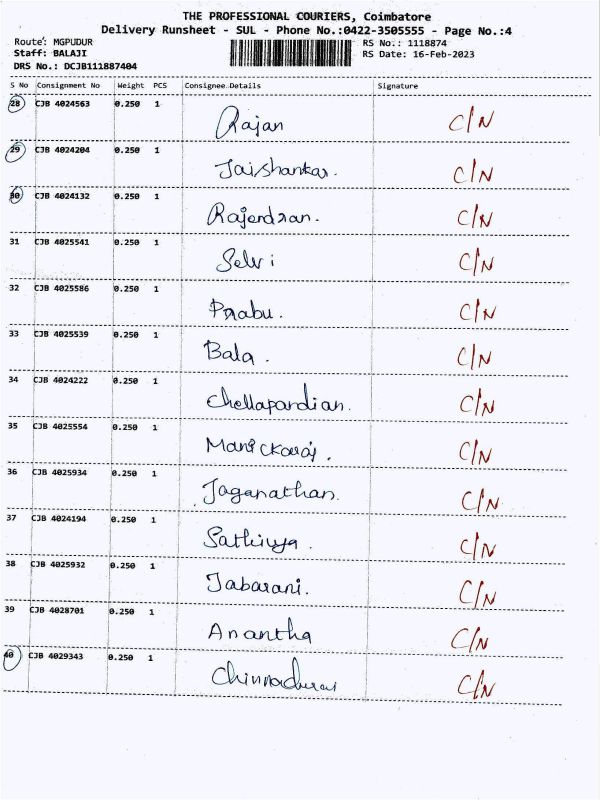 THE PROFESSIONAL COURIERS, Coimbatore
Delivery Runsheet - SUL - Phone No.:0422-3505555 - Page No.:4
Route: MGPUDUR RS No.: 1118874
Staff: BALAJI RS Date: 16-Feb-2023
DRS No.: DCJB111887404
S No Consignment No Weight PCS Consignee Details Signature
28 CJB 4024563 0.250 1 Rajan C/N
29 CJB 4024204 0.250 1 Jaishankar. C/N
30 CJB 4024132 0.250 1 Rajendran. C/N
31 CJB 4025541 0.250 1 Selvi C/N
32 CJB 4025586 0.250 1 Prabu. C/N
33 CJB 4025539 0.250 1 Bala. C/N
34 CJB 4024222 0.250 1 Chellapandian. C/N
35 CJB 4025554 0.250 1 Manickaraj. C/N
36 CJB 4025934 0.250 1 Jaganathan. C/N
37 CJB 4024194 0.250 1 Sathiya. C/N
38 CJB 4025932 0.250 1 Jabarani. C/N
39 CJB 4028701 0.250 1 Anantha C/N
40 CJB 4029343 0.250 1 Chinnadurai C/N